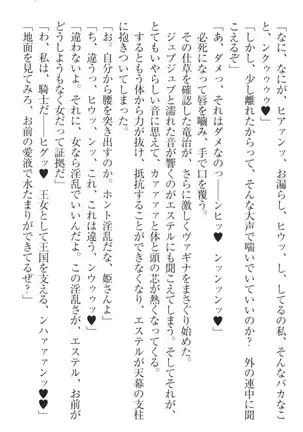 「なに、なにが、ヒアァンッ、お漏らし、ヒウッ、し、してるの、私、そんなバカなこ
と、ンクゥゥゥ♥」
「しかし、少し離れてたからって、そんな大声で喘いでいていいのか？　外の連中に聞
こえるぞ」
「あ、ダメっ、それは、ダメなのっ――ンヒッ♥　ンッンンッ♥」
必死になって唇を噛み、手で口を覆う。
その仕草を確認した竜治が、さらに激しくヴァギナをまさぐり始めた。
ジュブジュブと濡れた音が響くのがエステルにも聞こえてしまう。そしてそれが、
とてもいやらしい音に思えて、カァァァァと体と頭の芯が熱くなってくる。
するともう体から力が抜け、抵抗することができなくなり、エステルが天幕の支柱
に抱きついてしまった。
「お。自分から腰を突き出すのか。ホント淫乱だな、姫さんよ」
「ち、違うっ、ヒウッ、ンッ、これ、これは違う、ンウゥゥッ♥」
「違わないよ。それに、女なら淫乱でいいんだよ。この淫乱さが、エステル、お前が
どうしようもなく女だって証拠だ」
「わ、私は、騎士だ――ヒグッ♥　王女として王国を支える、ンハァァァンッ♥♥」
「地面を見てみろ、お前の愛液で水たまりができてるぜ？」